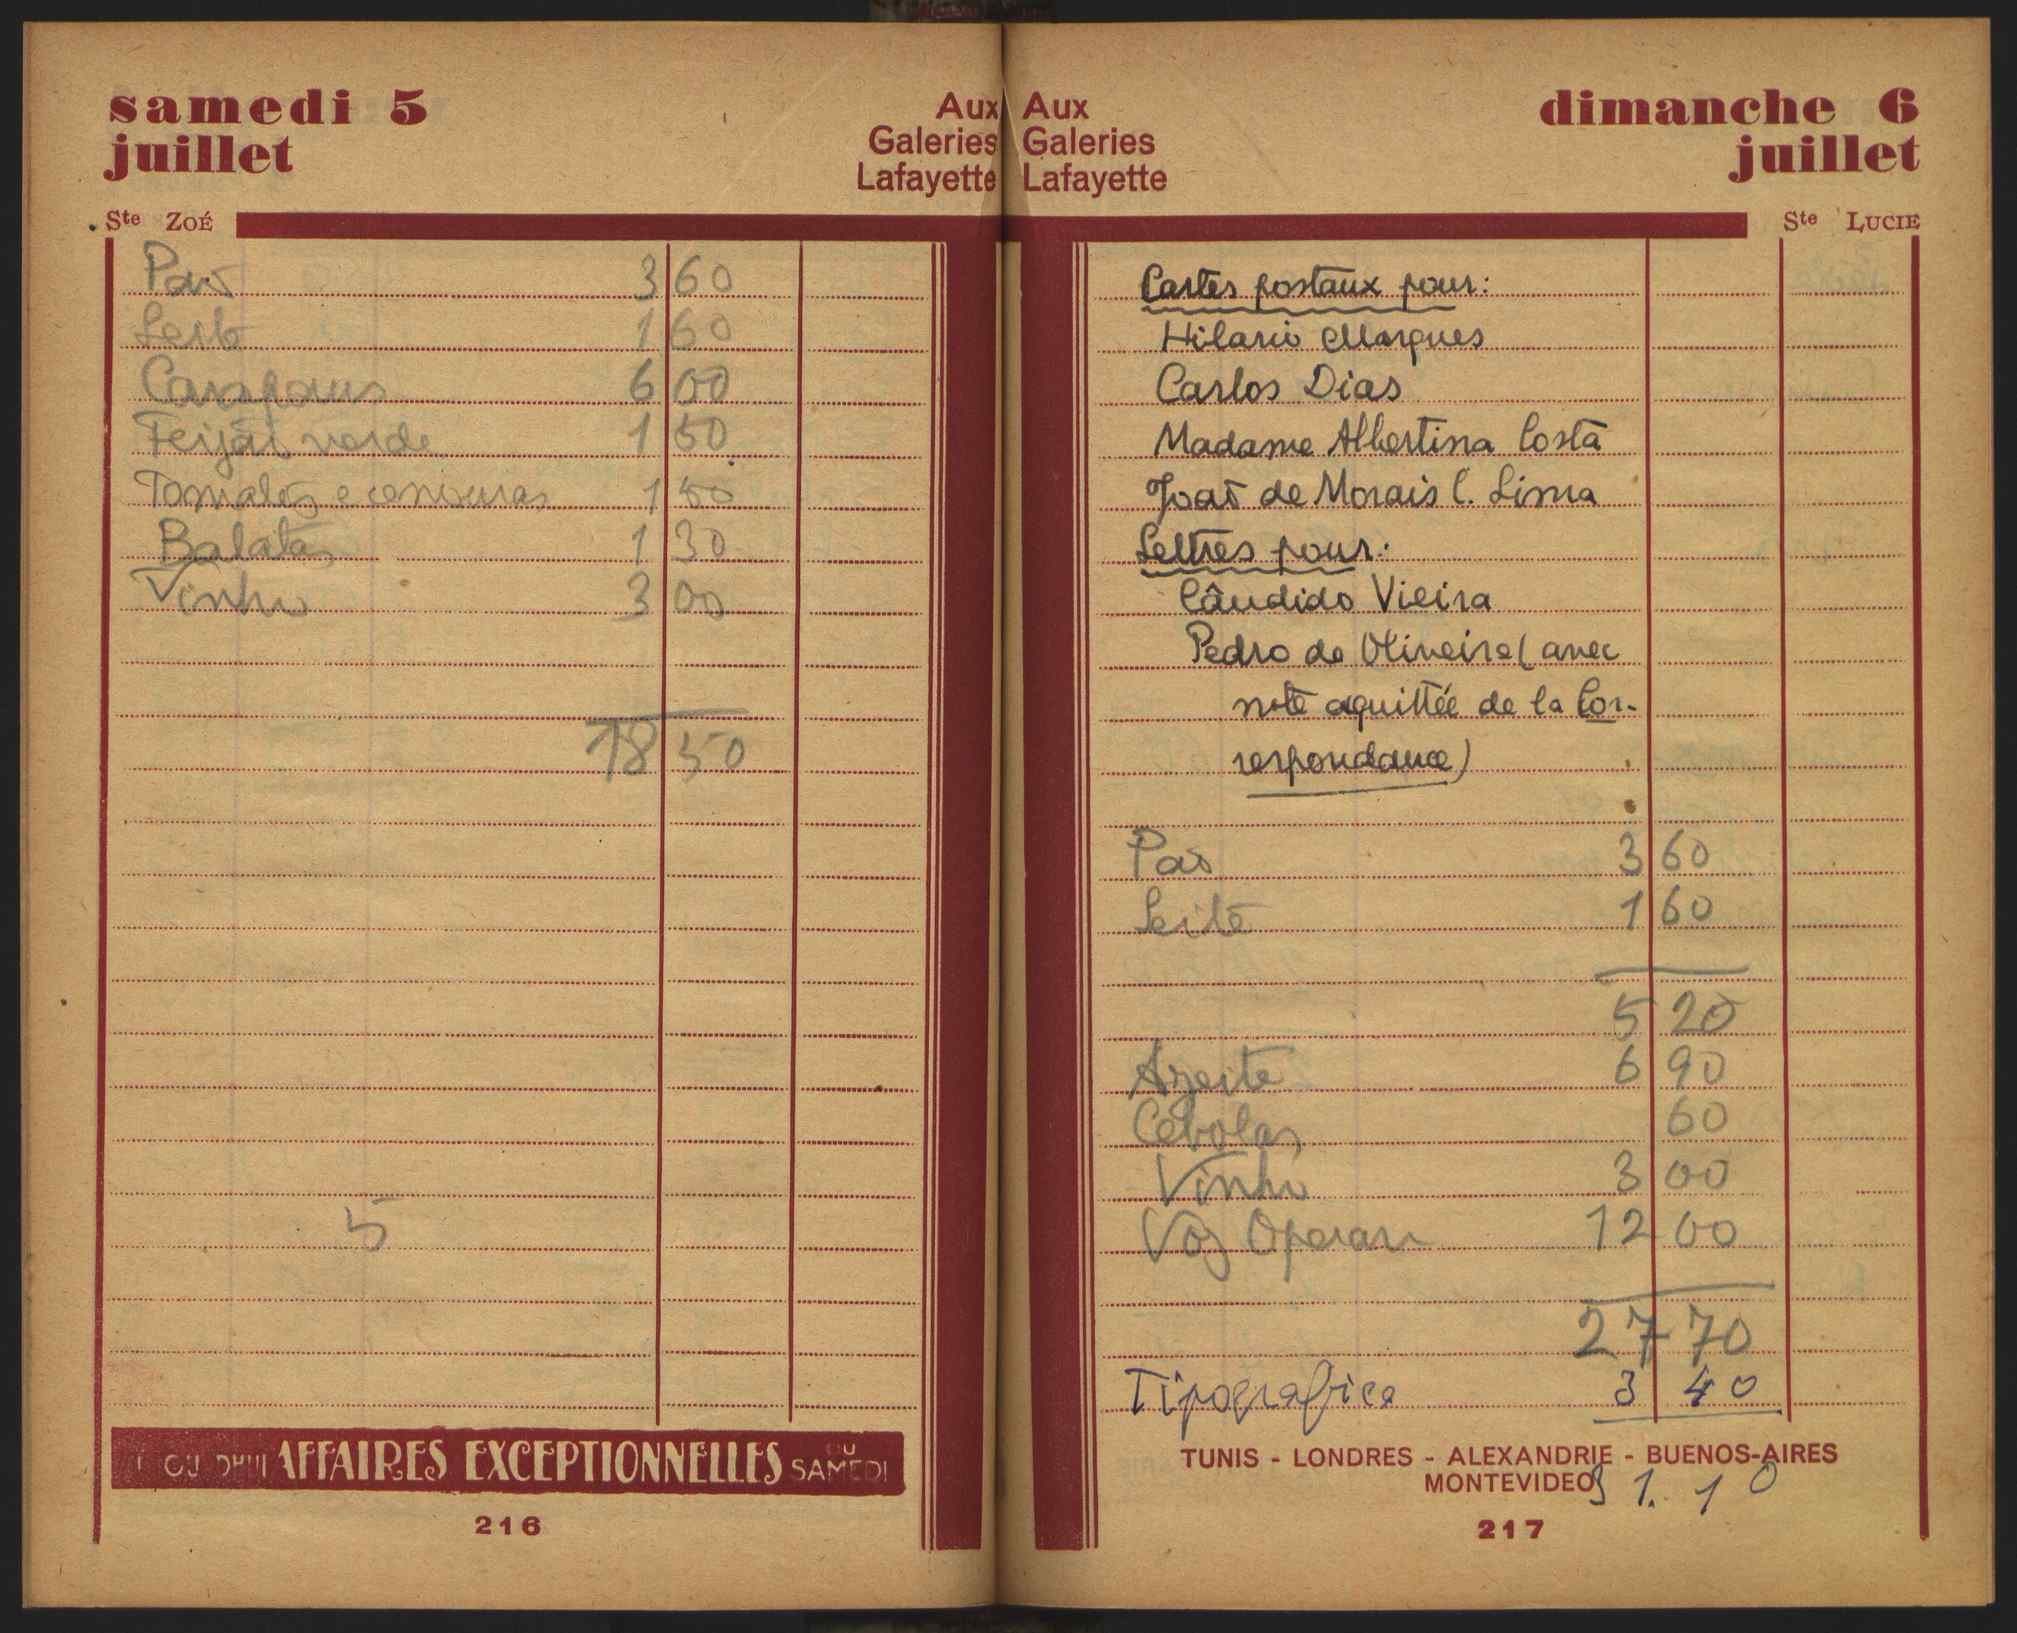 samedi 5
juillet
Aux
Galeries
Lafayette
Ste ZOÉ
Pão 3 60
Leite 1 60
Carapaus 6 00
Feijão verde 1 50
Tomates e cenouras 1 50
Batatas 1 30
Vinho 3 00
18 50
5
AFFAIRES EXCEPTIONNELLES DU SAMEDI
216
Aux
Galeries
Lafayette
dimanche 6
juillet
Ste LUCIE
Cartes postaux pour:
Hilario Marques
Carlos Dias
Madame Albertina Costa
João de Morais C. Lima
Lettres pour:
Cândido Vieira
Pedro de Oliveira (avec
note aquittée de la Cor-
respondance)
Pão 3 60
Leite 1 60
5 20
Azeite 6 90
Cebolas 60
Vinho 3 00
Voz Operari 12 00
27 70
Tipografica 3 40
TUNIS - LONDRES - ALEXANDRIE - BUENOS-AIRES
MONTEVIDEO
31.10
217